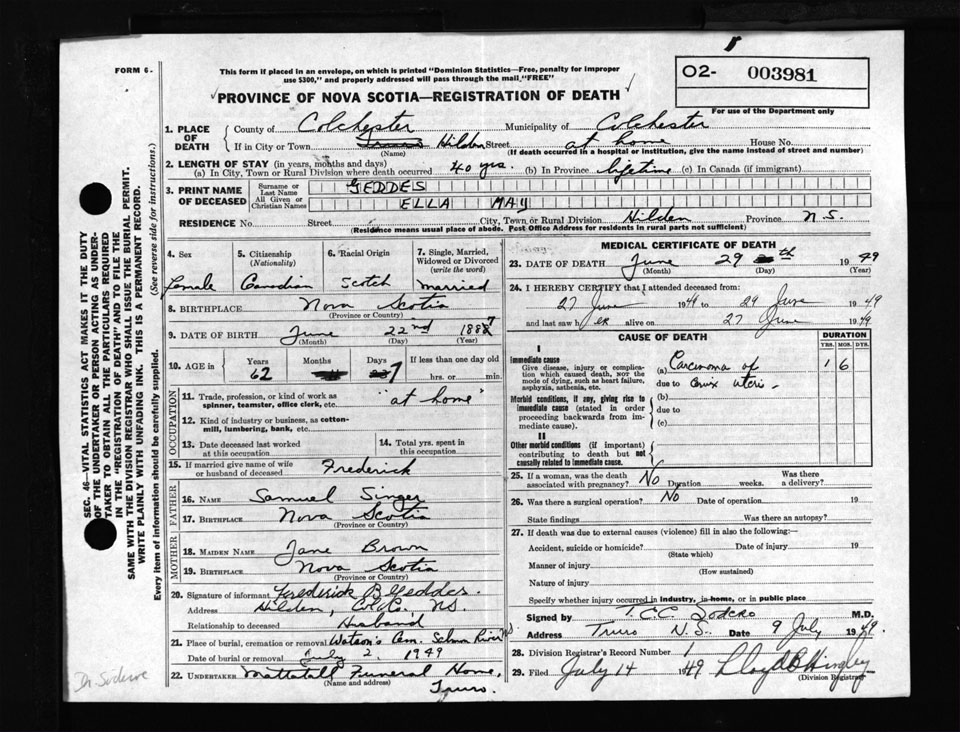 FORM 6-
This form if placed in an envelope, on which is printed "Dominion Statistics—Free, penalty for improper
use $300," and properly addressed will pass through the mail "FREE"
PROVINCE OF NOVA SCOTIA—REGISTRATION OF DEATH
O2- 003981
For use of the Department only
SEC. 46—VITAL STATISTICS ACT MAKES IT THE DUTY
OF THE UNDERTAKER OR PERSON ACTING AS UNDER-
TAKER TO OBTAIN ALL THE PARTICULARS REQUIRED
IN THE "REGISTRATION OF DEATH" AND TO FILE THE
SAME WITH THE DIVISION REGISTRAR WHO SHALL ISSUE THE BURIAL PERMIT.
WRITE PLAINLY WITH UNFADING INK. THIS IS A PERMANENT RECORD.
Every item of information should be carefully supplied. (See reverse side for instructions.)
1. PLACE OF DEATH
County of Colchester Municipality of Colchester
If in City or Town Truro Hilden Street at home House No.
(Name) (If death occurred in a hospital or institution, give the name instead of street and number)
2. LENGTH OF STAY (in years, months and days)
(a) In City, Town or Rural Division where death occurred 40 yrs. (b) In Province lifetime (c) In Canada (if immigrant)
3. PRINT NAME OF DECEASED
Surname or Last Name GEDDES
All Given or Christian Names ELLA MAY
RESIDENCE No. Street City, Town or Rural Division Hilden Province N.S.
(Residence means usual place of abode. Post Office Address for residents in rural parts not sufficient)
4. Sex 5. Citizenship (Nationality) 6. Racial Origin 7. Single, Married, Widowed or Divorced (write the word)
Female Canadian Scotch married
8. BIRTHPLACE Nova Scotia
(Province or Country)
9. DATE OF BIRTH June 22nd 1887
(Month) (Day) (Year)
10. AGE in Years Months Days If less than one day old
62 7 hrs. or min.
OCCUPATION
11. Trade, profession, or kind of work as spinner, teamster, office clerk, etc. "at home"
12. Kind of industry or business, as cotton-mill, lumbering, bank, etc.
13. Date deceased last worked at this occupation
14. Total yrs. spent in this occupation
15. If married give name of wife or husband of deceased Frederick
FATHER
16. NAME Samuel Singer
17. BIRTHPLACE Nova Scotia
(Province or Country)
MOTHER
18. MAIDEN NAME Jane Brown
19. BIRTHPLACE Nova Scotia
(Province or Country)
20. Signature of informant Frederick B Geddes
Address Hilden, Col Co., N.S.
Relationship to deceased Husband
21. Place of burial, cremation or removal Watson's Cem. Salmon River N.S.
Date of burial or removal July 2, 1949
22. UNDERTAKER Mattatall Funeral Home,
(Name and address) Truro.
MEDICAL CERTIFICATE OF DEATH
23. DATE OF DEATH June 29 th 1949
(Month) (Day) (Year)
24. I HEREBY CERTIFY that I attended deceased from:
27 June 1949 to 29 June 1949
and last saw her alive on 27 June 1949
CAUSE OF DEATH
DURATION
YRS. MOS. DYS.
I
Immediate cause
Give disease, injury or complication which caused death, NOT the mode of dying, such as heart failure, asphyxia, asthenia, etc.
(a) Carcinoma of 1 6
due to Cervix uteri -
Morbid conditions, if any, giving rise to immediate cause (stated in order proceeding backwards from immediate cause).
(b)
due to
(c)
II
Other morbid conditions (if important) contributing to death but not causally related to immediate cause.
25. If a woman, was the death associated with pregnancy? No Duration weeks. Was there a delivery?
26. Was there a surgical operation? No Date of operation 19
State findings Was there an autopsy?
27. If death was due to external causes (violence) fill in also the following:—
Accident, suicide or homicide? Date of injury 19
(State which)
Manner of injury
(How sustained)
Nature of injury
Specify whether injury occurred in industry, in home, or in public place
Signed by T.C.C. Sodero M.D.
Address Truro N.S. Date 9 July 1949.
28. Division Registrar's Record Number 1
29. Filed July 14 1949 Lloyd B Hingley
(Division Registrar)